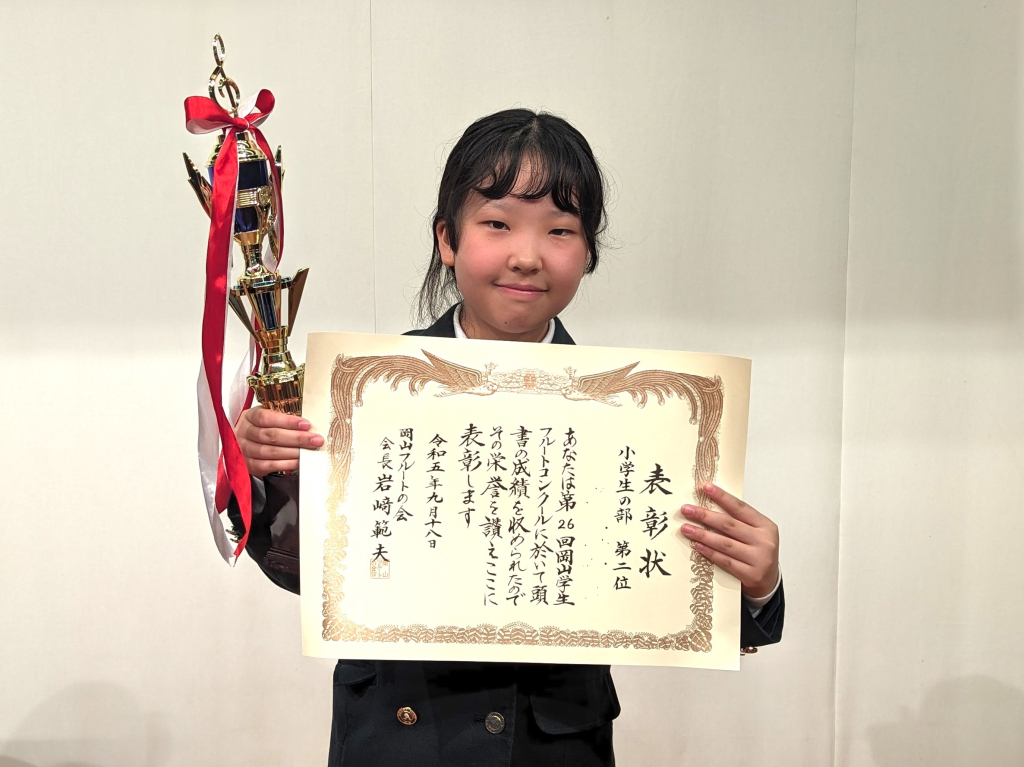 表彰状
小学生の部 第二位
あなたは第26回岡山学生
フルートコンクールに於いて頭
書の成績を収められたので
その栄誉を讃えここに
表彰します
令和五年九月十八日
岡山フルートの会
会長 岩﨑範夫